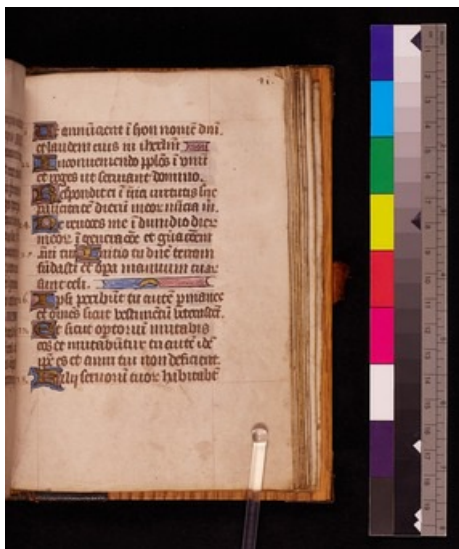 Ut annūcient ī syon nomē dnī.
et laudem eius in ihrlm
In conueniendo ppłos ī vnū
et reges ut seruiant domino.
Respondit ei ī uia uirtutis sue
paucitatē dierū meor nūcia m.
Ne reuoces me ī dimidio dier
meor ī generacōe et gūacōem
Inicio tu dnē terram
fūdasti et opa manuum tuar
sunt celi.
Ipsi peribūt tu autē pmanes
et omēs sicut vestimētū veterascēt.
Et sicut optoriū mutabis
eos et mutabūtur tu autē idē
ipē es et anni tui non deficient.
Filij seruorū tuor hitabūt